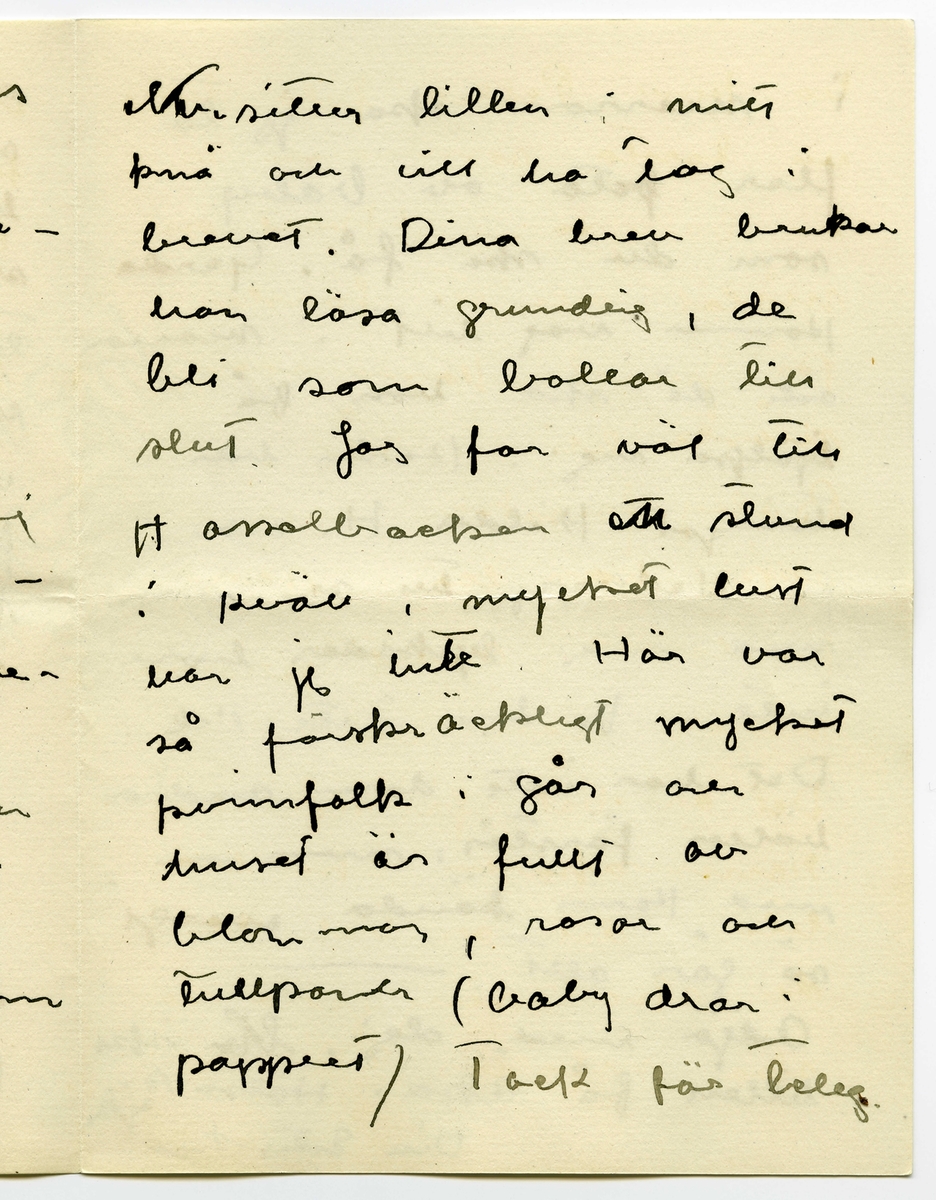 Nu sitter lillen i mitt
knä och vill ha tag i
brevet. Dina brev brukar
han läsa grundlig, de
bli som bollar till
slut. Jag far väl till
Hasselbacken en stund
i kväll, mycket lust
har jg inte. Här var
så förskräckligt mycket
kvinnfolk i går och
huset är fullt av
blommor, rosor och
tullpaner (baby drar i
pappret) Tack för teleg.